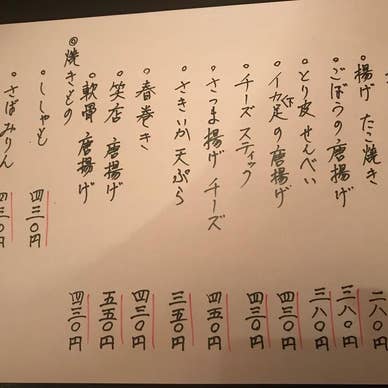 ・揚げ たこ焼き 二八〇円
・ごぼうの唐揚げ 三八〇円
・とり皮せんべい 三八〇円
・イカ足の唐揚げ 四三〇円
・チーズ スティック 四三〇円
・さつま揚げ チーズ 四五〇円
・さきいか天ぷら 三五〇円
・春巻き 四三〇円
・笑店 唐揚げ 五五〇円
・軟骨 唐揚げ 四三〇円
◎焼きもの
・ししゃも 四三〇円
・さばみりん 四三〇円